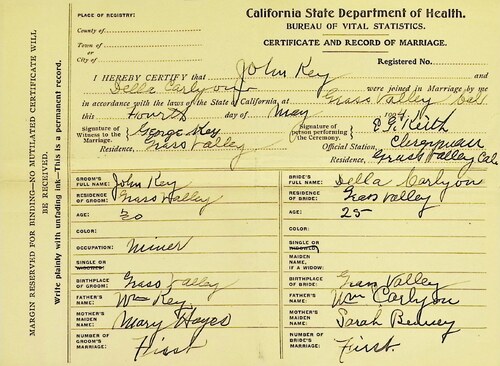 California State Department of Health.
BUREAU OF VITAL STATISTICS.
CERTIFICATE AND RECORD OF MARRIAGE.
PLACE OF REGISTRY:
County of
Town of
or
City of
Registered No.
I HEREBY CERTIFY that John Key and
Della Carlyon were joined in Marriage by me
in accordance with the laws of the State of California at Grass Valley Cal.
this Fourth day of May
Signature of Witness to the Marriage. George Key
Residence, Grass Valley
Signature of person performing the Ceremony. Keith
Official Station, Clergyman
Residence, Grass Valley Cal.
MARGIN RESERVED FOR BINDING—NO MUTILATED CERTIFICATE WILL
BE RECEIVED.
Write plainly with unfading ink—This is a permanent record.
GROOM'S FULL NAME: John Key
RESIDENCE OF GROOM: Grass Valley
AGE: 20
COLOR:
OCCUPATION: Miner
SINGLE OR WIDOWED:
BIRTHPLACE OF GROOM: Grass Valley
FATHER'S NAME: Wm Key
MOTHER'S MAIDEN NAME: Mary Hayes
NUMBER OF GROOM'S MARRIAGE: First
BRIDE'S FULL NAME: Della Carlyon
RESIDENCE OF BRIDE: Grass Valley
AGE: 25
COLOR:
SINGLE OR WIDOWED:
MAIDEN NAME, IF A WIDOW:
BIRTHPLACE OF BRIDE: Grass Valley
FATHER'S NAME: Wm Carlyon
MOTHER'S MAIDEN NAME: Sarah
NUMBER OF BRIDE'S MARRIAGE: First.